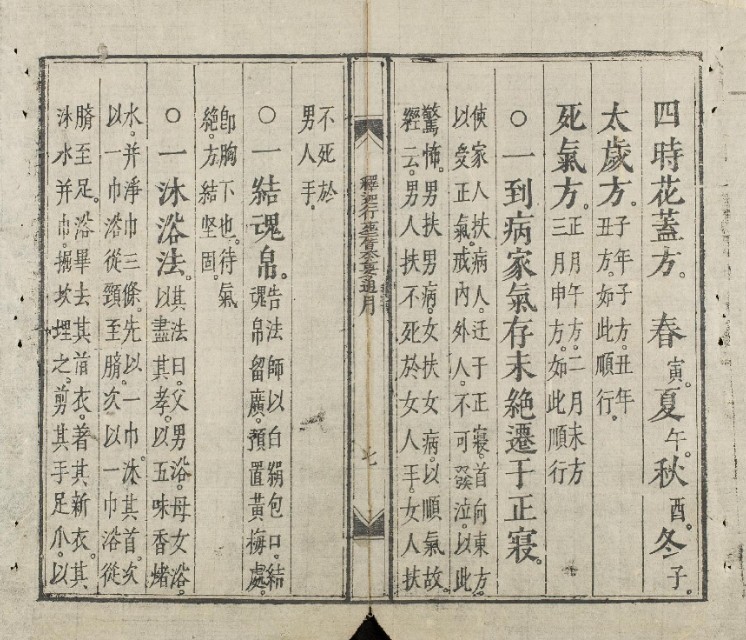 四時花蓋方。春寅。夏午。秋酉。冬子。
太歲方。子年子方。丑年
丑方。如此順行。
死氣方。正月午方。二月未方
三月申方。如此順行
○一到病家氣存未絶遷于正寢。
使家人扶病人。迁于正寢。首向東方。
以受正氣。戒内外人。不可發泣。以此
驚怖。男扶男病。女扶女病。以順氣故。
經云。男人扶不死於女人手。女人扶
七
不死於
男人手。
○一結魂帛。告法師以白絹包口。結
魂帛留廣。預置黃梅處。
即胸下也。待氣
絶。方結坚固。
○一沐浴法。其法曰。父男浴。母女浴。
以盡其孝。以五味香
水。并淨巾三條。先以一巾沐其首。次
以一巾浴從頸至臍。次以一巾浴從
臍至足。浴畢去其旧衣。著其新衣。其
沐水并巾。掘坎埋之。剪其手足爪。以